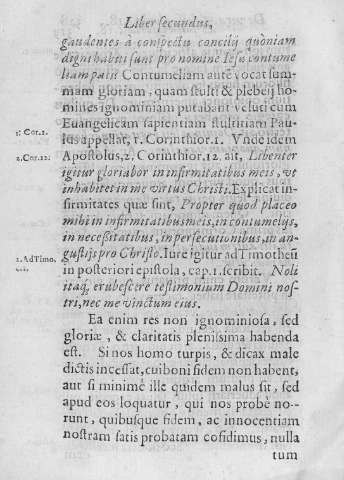 Liber secundus,
gaudentes à conspectu concilij quoniam
digni habiti sunt pro nomine Iesu contume
liam pati: Contumeliam autẽ vocat sum-
mam gloriam, quam stulti & plebeij ho-
mines ignominiam putabant veluti cum
Euangelicam sapientiam stultitiam Pau-
1. Cor.1.
lus appellat, 1. Corinthior.1. Vnde idem
2.Cor.12.
Apostolus,2. Corinthior.12. ait, Libenter
igitur gloriabor in infirmitatibus meis, vt
inhabitet in me virtus Christi. Explicat in-
firmitates quæ sint, Propter quod placeo
mihi in infirmitatibus meis, in contumelijs,
in necessitatibus, in persecutionibus, in an-
gustijs pro Christo. Iure igitur ad Timotheũ
AdTimo.
in posteriori epistola, cap.1.scribit. Noli
itaq, erubescere testimonium Domini nos-
tri, nec me vinctum eius.
Ea enim res non ignominiosa, sed
gloriæ, & claritatis plenissima habenda
est. Si nos homo turpis, & dicax male
dictis incessat, cui boni fidem non habent,
aut si minimè ille quidem malus sit, sed
apud eos loquatur, qui nos probè no-
runt, quibusque fidem, ac innocentiam
nostram satis probatam cõsidimus, nulla
tum